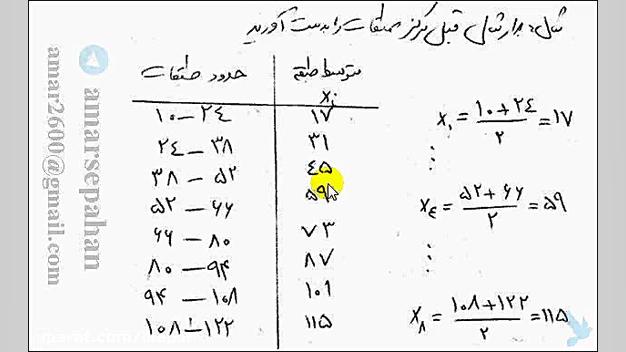 مثال: در مثال قبلی مرکز طبقات را بدست آورید
حدود طبقات متوسط طبقه xᵢ
۱۰ – ۲٤ ۱۷
۲٤ – ۳۸ ۳۱
۳۸ – ۵۲ ٤۵
۵۲ – ۶۶ ۵۹
۶۶ – ۸۰ ۷۳
۸۰ – ۹۴ ۸۷
۹۴ – ۱۰۸ ۱۰۱
۱۰۸ – ۱۲۲ ۱۱۵
x₁ = (۱۰+۲٤)/۲ = ۱۷
⋮
x₄ = (۵۲+۶۶)/۲ = ۵۹
⋮
x₈ = (۱۰۸+۱۲۲)/۲ = ۱۱۵
amarsepahan
amar2600@gmail.com